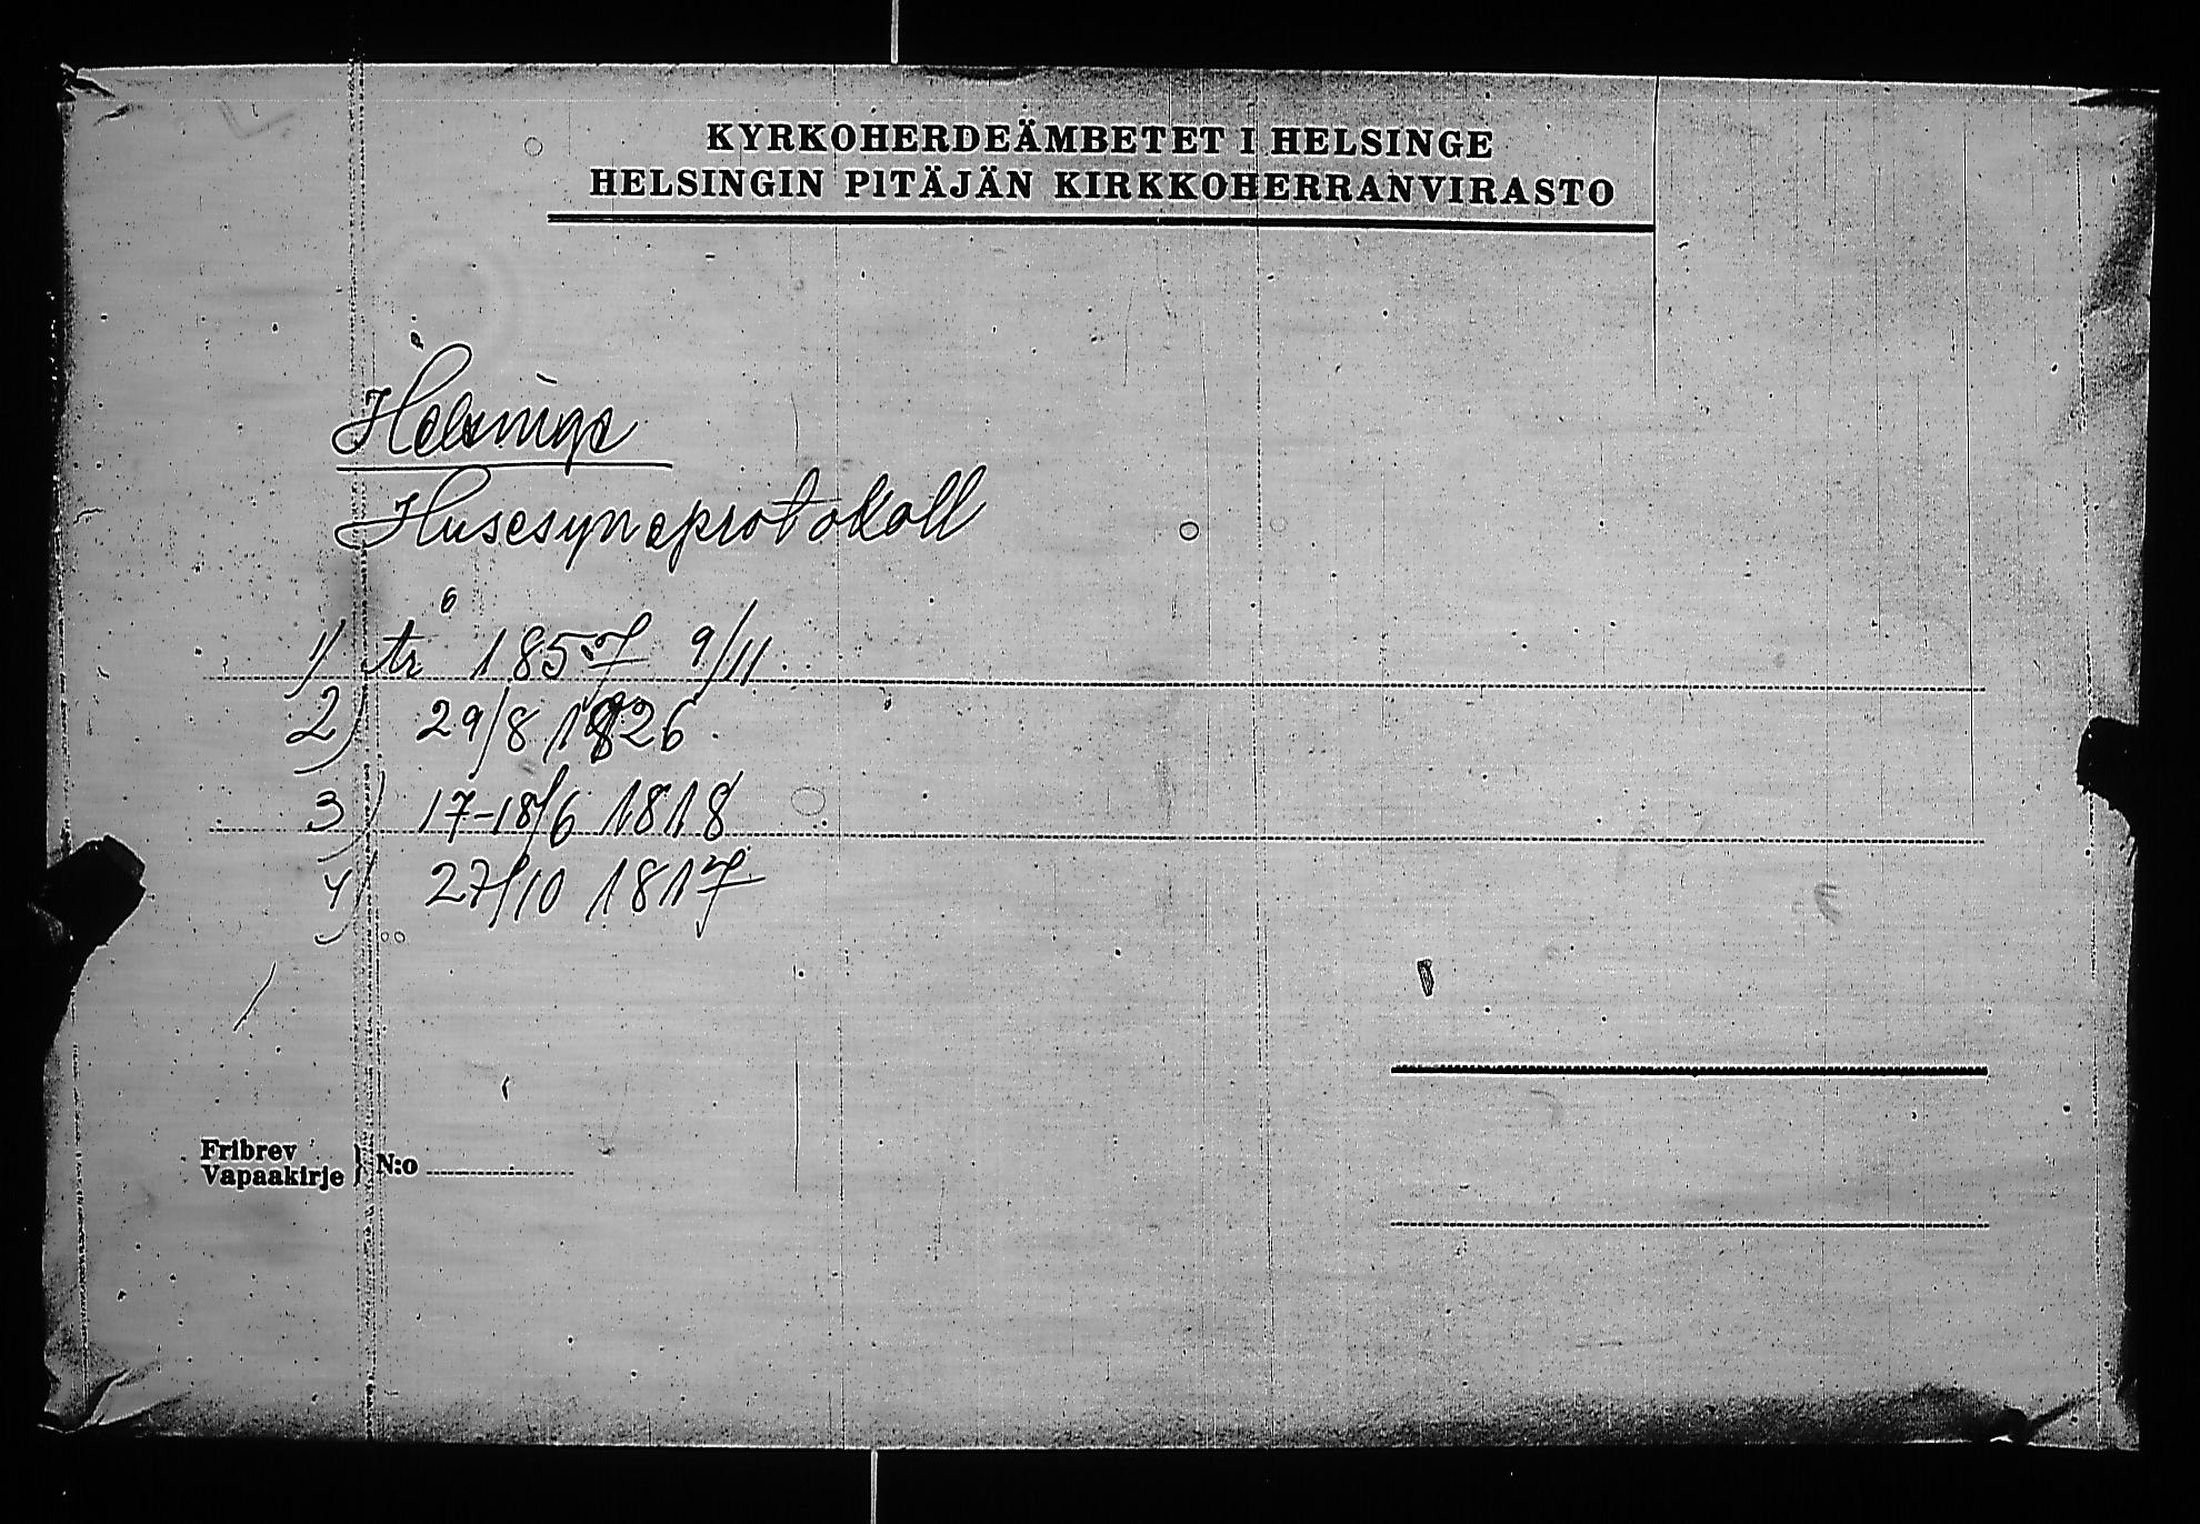 KYRKOHERDEÄMBETET I HELSINGE
HELSINGIN PITÄJÄN KIRKKOHERRANVIRASTO
Helsinge
Husesynsprotokoll
1) år 1857 9/11
2) 29/8 1826
3) 17-18/6 1818
4) 27/10 1817
Fribrev
Vapaakirje } N:o